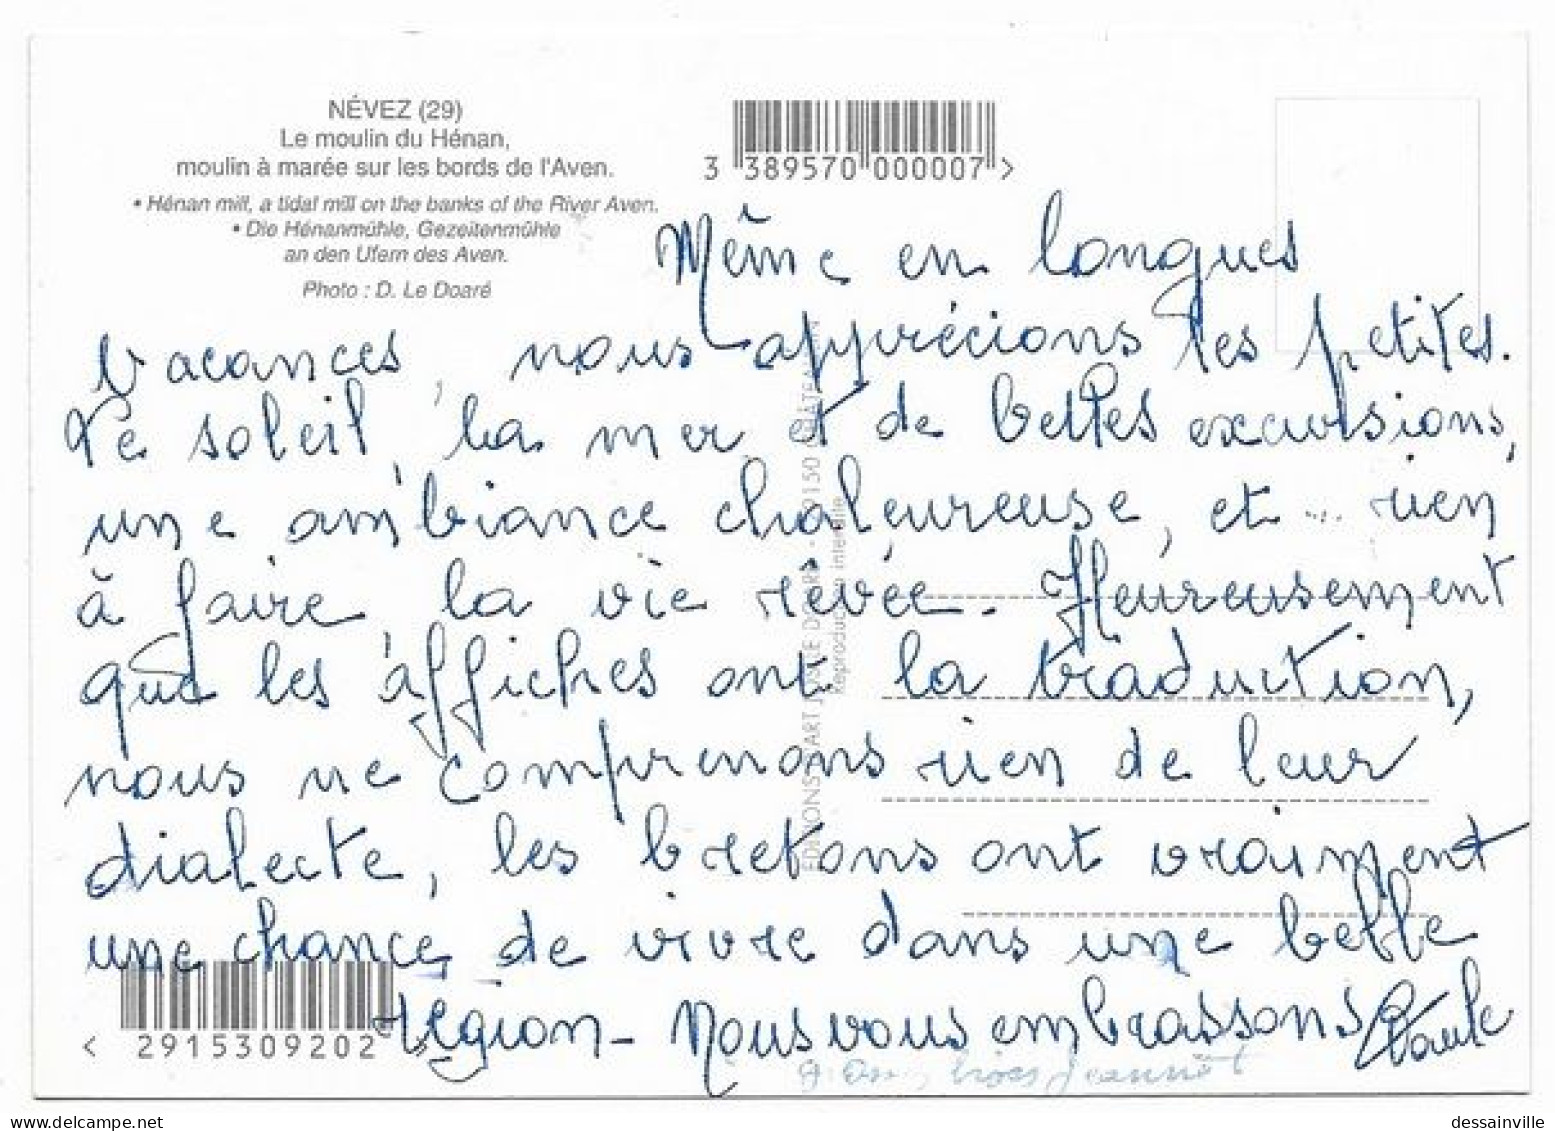 NÉVEZ (29)
Le moulin du Hénan,
moulin à marée sur les bords de l'Aven.
• Hénan mill, a tidal mill on the banks of the River Aven.
• Die Hénanmühle, Gezeitenmühle
an den Ufern des Aven.
Photo : D. Le Doaré
3 389570 000007 >
Même en longues
vacances, nous apprécions les petites.
Le soleil, la mer et de belles excursions,
une ambiance chaleureuse, et ... rien
à faire, la vie rêvée. Heureusement
que les affiches ont la traduction,
nous ne comprenons rien de leur
dialecte, les bretons ont vraiment
une chance de vivre dans une belle
région - Nous vous embrassons
Paule
Jeannot
EDITIONS D'ART JOS LE DOARÉ • 29150 CHÂTEAULIN
Reproduction interdite
< 2915309202 >
dessainville